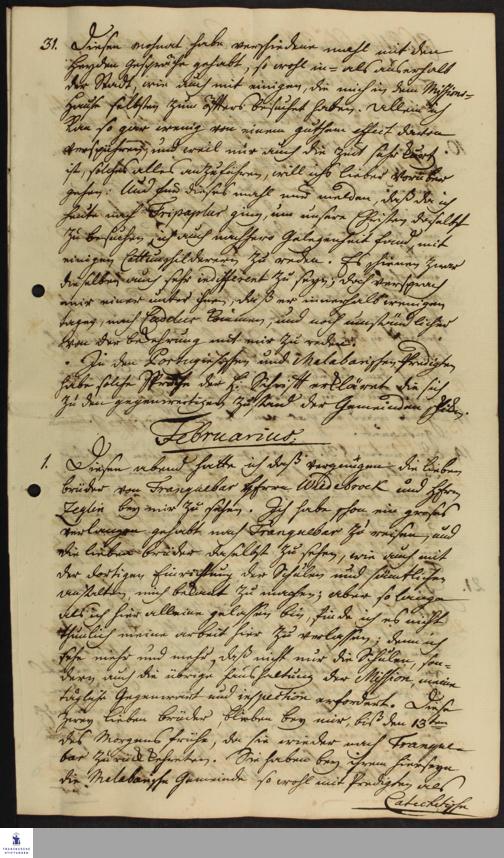 31. Diesen mohnat habe verschiedene mahl mit den
Heyden Gespräche gehabt, so wohl in- als auserhalb
der Stadt, wie auch mit einigen, die mich in dem Mission-
Hauß selbsten zum öfters besuchet haben. Allein ich
kan so gar wenig von einem guthem effect davon
verspühren, und weil mir auch die Zeit sehr kurtz
ist, solches alles anzuführen, will ich lieber vorüber
gehen: Und für dieses mahl nur melden, daß da ich
heute nach Tripapolur ging, um unsere Christen daselbst
zu besuchen, ich auch nachhero Gelegenheit fand, mit
einigen zu reden. Es schienen zwar
dieselben auch sehr indifferent zu seyn; doch versprach
mir einer unter ihnen, daß er innerhalb wenigen
tagen, nach Cudelur kommen, und noch umständlicher
von der bekehrung mit mir zu reden.
In den Portugiesischen und Malabarischen Predigten
habe solche Sprüche der H. Schrifft erkläret die sich
zu den gegenwertigen Zustand der Gemeinden schicken.
Februarius.
1. Diesen abend hatte ich daß vergnügen die lieben
brüder von Tranquebar Herrn Wiedebrock und Herrn
Zeglin bey mir zu sehen. Ich habe schon ein großes
verlangen gehabt nach Tranquebar zu reisen, und
die lieben brüder daselbst zu sehen, wie auch mit
der dortigen Einrichtung der Schulen und sämtlichen
anstalten, mich bekant zu machen; aber so lange
als ich hier alleine gelassen bin, finde ich es nicht
thunlich meine arbeit hier zu verlassen; denn ich
sehe mehr und mehr, daß nicht nur die Schulen, son-
dern auch die übrige Haushaltung der Mission, meine
tägliche Gegenwart und inspection erfordert. Diese
zwey lieben brüder, blieben bey mir, biß den 13ten
des Morgens frühe, da sie wieder nach Tranque-
bar zurück kehreten. Sie haben bey ihrem hierseyn
die Malabarische Gemeinde so wohl mit Predigten als
Catechisysche
FRANCKESCHE
STIFTUNGEN